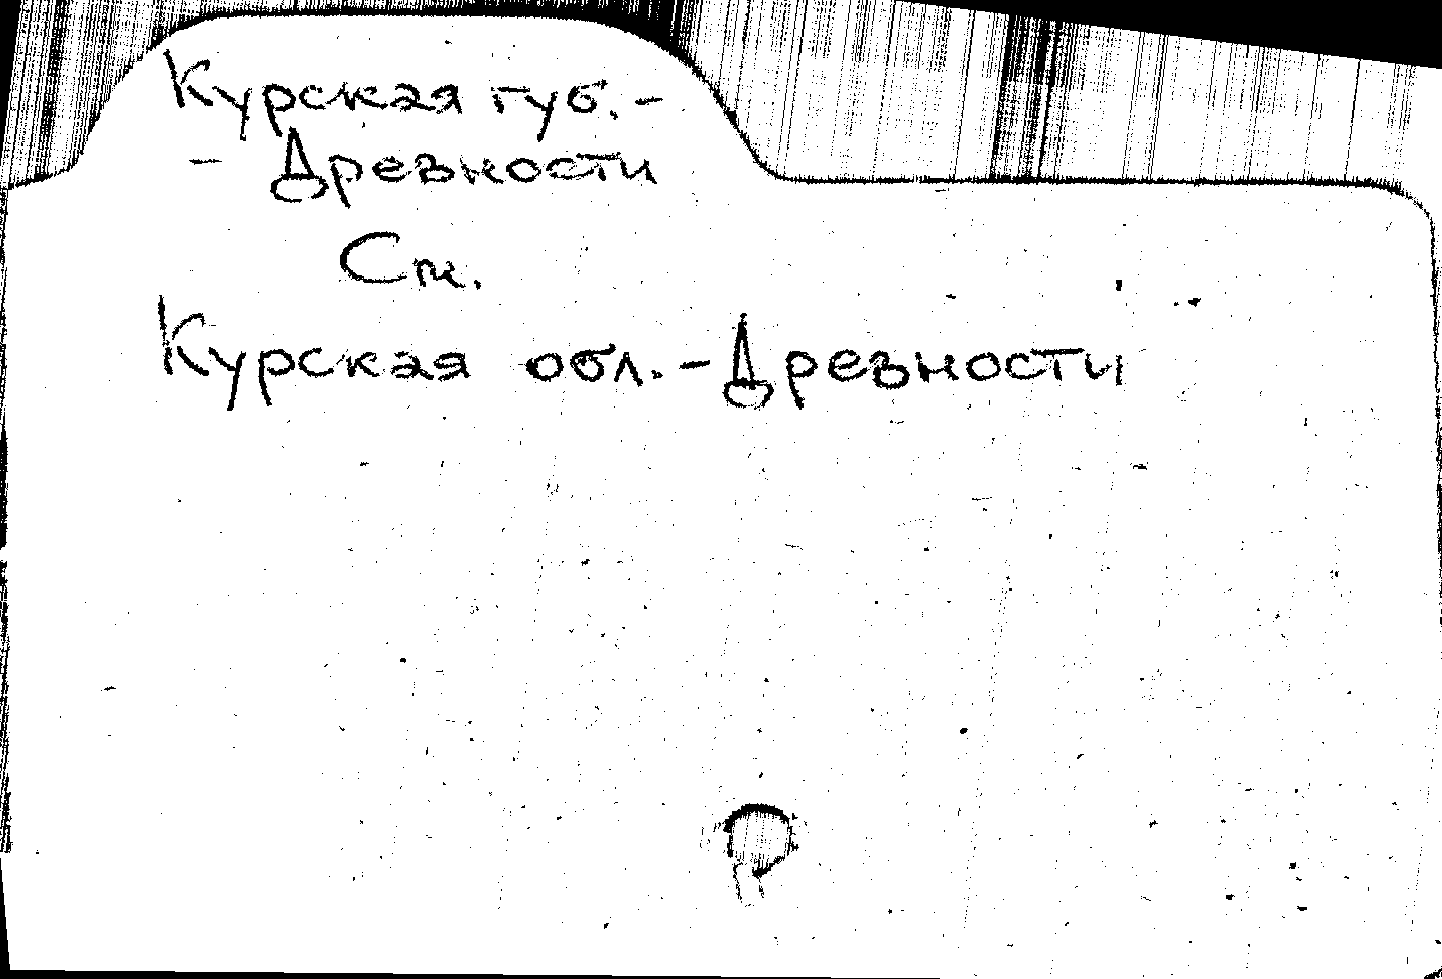 Курская губ. -
- Древности
См.
Курская обл. - Древности